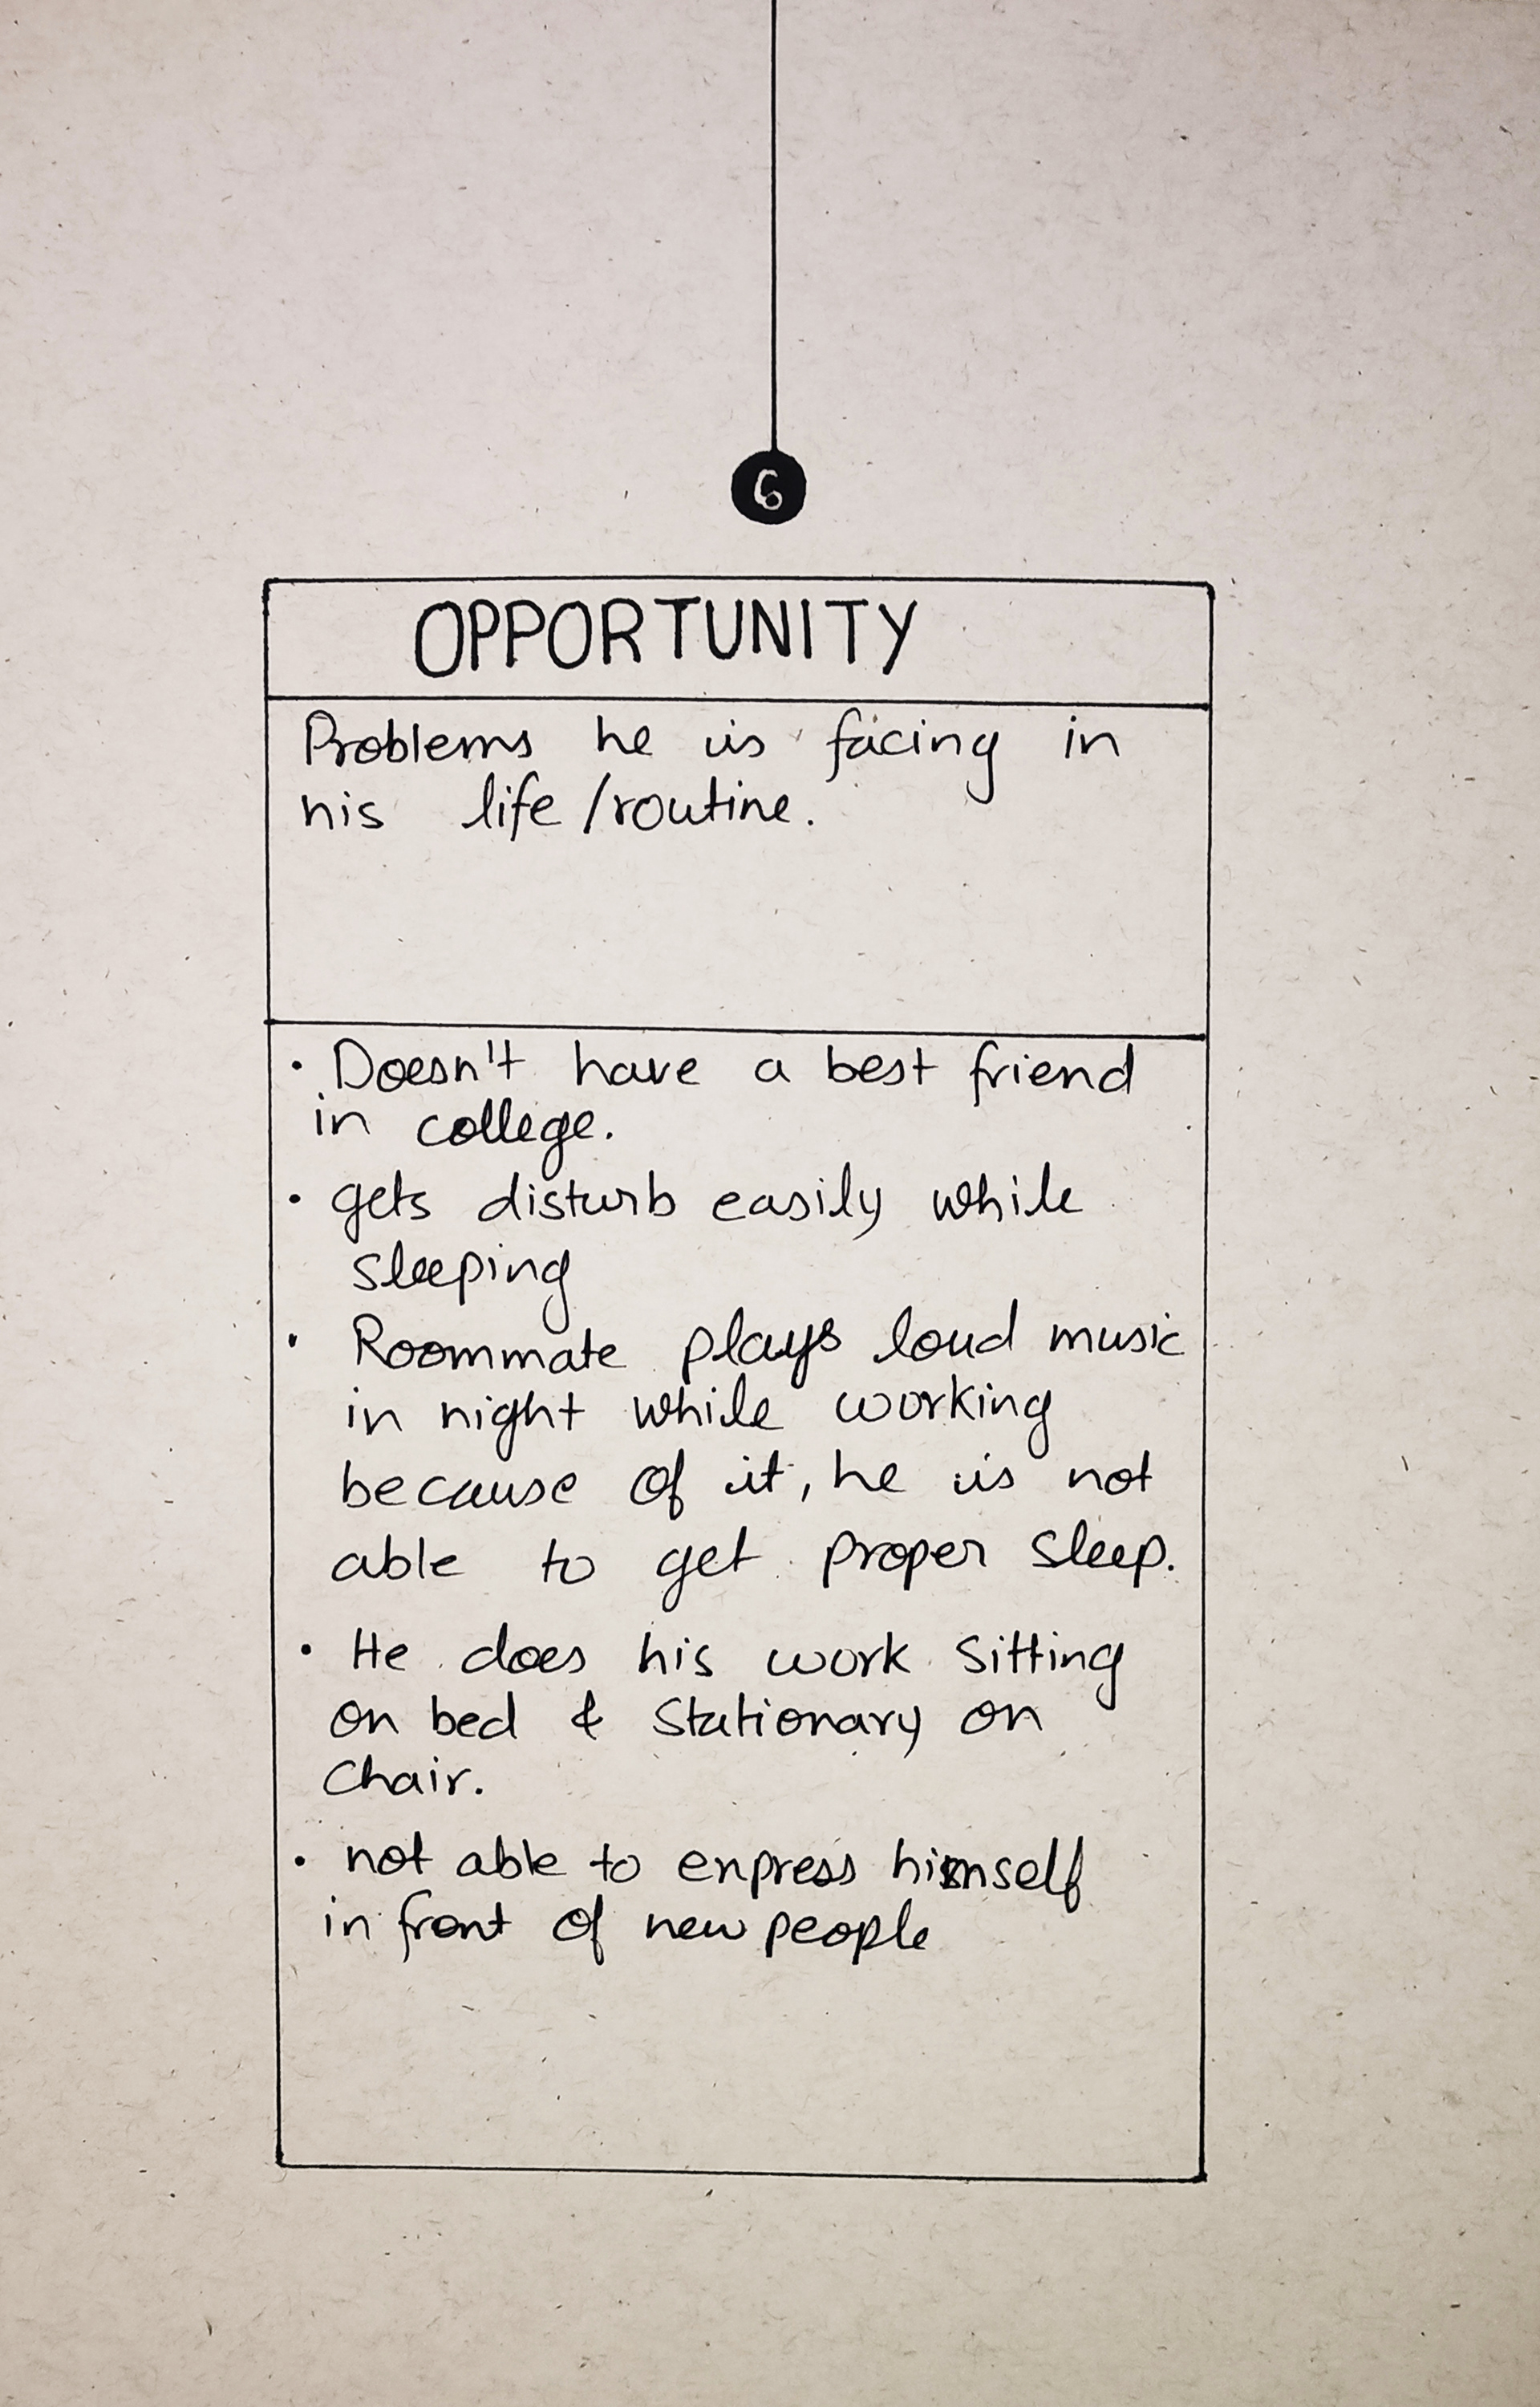 6
OPPORTUNITY
Problems he is facing in
his life/routine.
• Doesn't have a best friend
in college.
• gets disturb easily while
sleeping
• Roommate plays loud music
in night while working
because of it, he is not
able to get proper sleep.
• He does his work sitting
on bed & stationary on
chair.
• not able to express himself
in front of new people